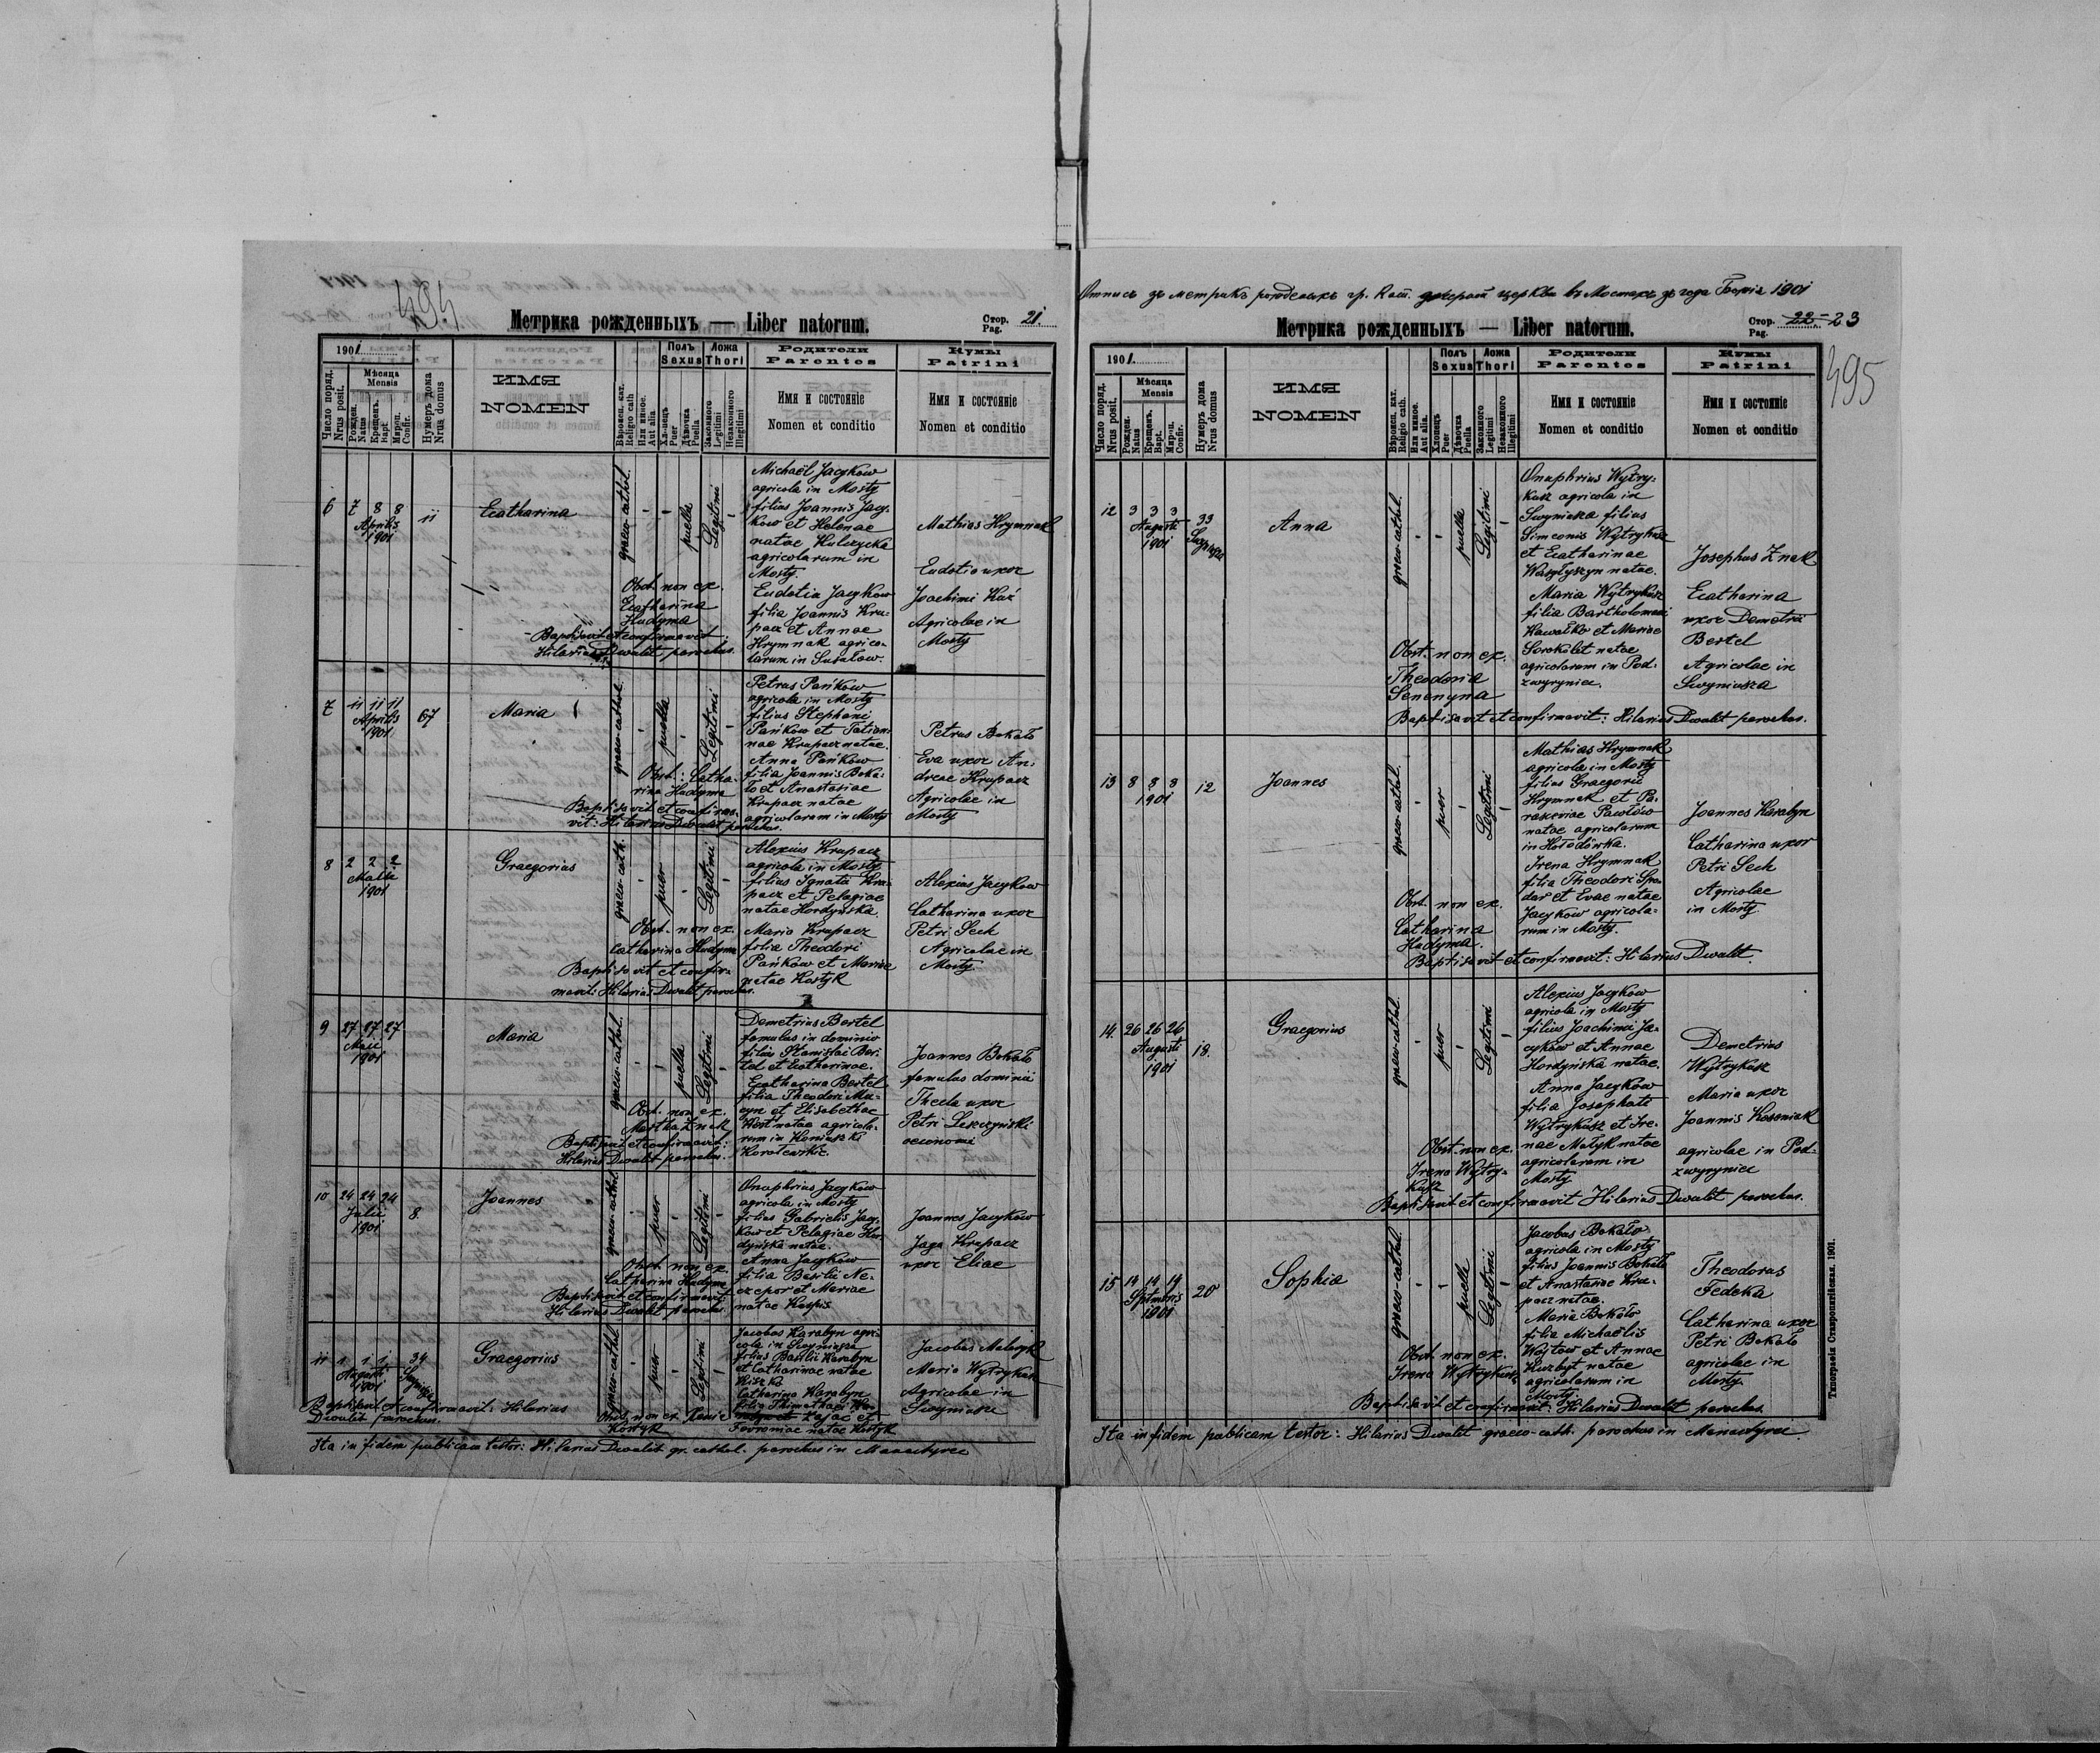 494
Метрика рожденныхъ — Liber natorum.
Стор. Pag. 21.
1901
Число поряд. Nrus posit.
Мѣсяца Mensis
Рожден. Natus
Крещенъ. Bapt.
Миров. Confir.
Нумеръ дома Nrus domus
ИМЯ
NOMEN
Вѣроисп. кат. Religio cath
Или инное. Aut alia
Полъ Sexus
Хлопецъ Puer
Дѣвочка Puella
Ложа Thori
Законного Legitimi
Незаконного Illegitimi
Родители
Parentes
Имя и состоянiе
Nomen et conditio
Кумы
Patrini
Имя и состоянiе
Nomen et conditio
6 7 8 8 Aprilis 1901 11
Ecatharina
graeco-cathol.
- - puella Legitimi -
Michaël Jacykow
agricola in Mosty
filius Joannis Jacy-
kow et Helenae
natae Kulczycka
agricolarum in
Mosty.
Eudotia Jacykow
filia Joannis Kru-
pacz et Annae
Hrymnak agrico-
larum in Susułow.
Mathias Hrymnak
Eudotia uxor
Joachimi Kuź
Agricolae in
Mosty
Obst. non ex.
Ecatharina
Hudyma
Baptisavit et confirmavit:
Hilarius Dwulit parochus.
7 11 11 11 Aprilis 1901 67
Maria
graeco-cathol.
- puella - Legitimi -
Petrus Pańkow
agricola in Mosty
filius Stephani
Pańkow et Tatian-
nae Krupacz natae.
Anna Pańkow
filia Joannis Boka-
ło et Anastasiae
Krupacz natae
agricolarum in Mosty
Petrus Bokało
Eva uxor An-
dreae Krupacz
Agricolae in
Mosty
Obst.: Catha-
rina Hudyma
Baptisavit et confirma-
vit: Hilarius Dwulit parochus.
8 2 2 2 1901
Graegorius
graeco-cath.
- puer - Legitimi -
Alexius Krupacz
agricola in Mosty
filius Ignatii Kru-
pacz et Pelagiae
natae Hordyńska.
Maria Krupacz
filia Theodori
Pańkow et Mariae
natae Kostyk
Alexius Jacykow
Catharina uxor
Petri Sech
Agricolae in
Mosty
Obst. non ex.
Catharina Hudyma
Baptisavit et confir-
mavit: Hilarius Dwulit parochus.
9 27 27 27 Maii 1901
Maria
graeco-cathol.
- - puella Legitimi -
Demetrius Bertel
famulus in dominio
filius Stanislai Ber-
tel et Ecatharinae.
Ecatharina Bertel
filia Theodori
et Elisabethae
natae agricola-
rum in
Joannes Bokało
famulus dominii
Thecla uxor
Petri Leszczyński
oeconomi
Obst. non ex.
Martha Znak
Baptisavit et confirmavit:
Hilarius Dwulit parochus.
10 24 24 24 Julii 1901 8.
Joannes
graeco-cathol.
- puer - Legitimi -
Onuphrius Jacykow
agricola in Mosty
filius Gabrielis Jacy-
kow et Pelagiae Hor-
dyńska natae.
Anna Jacykow
filia Basilii Ne-
czepor et Mariae
natae
Joannes Jacykow
Jaga Krupacz
uxor Eliae
Obst. non ex.
Catharina Hudyma
Baptisavit et confirmavit
Hilarius Dwulit parochus.
11 1 1 1 Augusti 1901 34
Graegorius
graeco-cathol
- puer - Legitimi -
Jacobus Karabyn agri-
cola in Swyniusza
filius Basilii Karabyn
et Catharinae natae
Catharina Karabyn
et
natae Kostyk
Jacobus
Maria Wytrykusz
Agricolae in
Swyniusza
Baptisavit et confirmavit: Hilarius
Dwulit parochus.
Obst. non ex.
Kostyk
Ita in fidem publicam testor: Hilarius Dwulit gr. cathol. parochus in Manasterec
Отпись зъ метрикъ рожденыхъ гр. кат. церкви въ Мостахъ зъ года Божія 1901
Метрика рожденныхъ — Liber natorum.
Стор. Pag. 22-23
495
1901.
Число поряд. Nrus posit.
Мѣсяца Mensis
Рожден. Natus
Крещенъ. Bapt.
Миров. Confir.
Нумеръ дома Nrus domus
ИМЯ
NOMEN
Вѣроисп. кат. Religio cath.
Или инное. Aut alia.
Полъ Sexus
Хлопецъ Puer
Дѣвочка Puella
Ложа Thori
Законного Legitimi
Незаконного Illegitimi
Родители
Parentes
Имя и состоянiе
Nomen et conditio
Кумы
Patrini
Имя и состоянiе
Nomen et conditio
12 3 3 3 Augusti 1901 33 Swyniusza
Anna
graeco-cathol.
- - puella Legitimi -
Onuphrius Wytry-
kusz agricola in
Swyniusza filius
Simeonis Wytrykusz
et Ecatharinae
Wasyłyszyn natae.
Maria Wytrykusz
filia Bartholomaei
Kawałko et Mariae
Sorokalit natae
agricolarum in Pod-
zwyryniec.
Josephus Znak
Ecatharina
uxor Demetrii
Bertel
Agricolae in
Swyniusza
Obst. non ex.
Theodoria
Senenyna
Baptisavit et confirmavit: Hilarius Dwulit parochus.
13 8 8 8 1901 12
Joannes
graeco-cathol.
- puer - Legitimi -
Mathias Hrymnak
agricola in Mosty
filius Graegorii
Hrymnak et Pa-
rasceviae Pawłów
natae agricolarum
in Hołodówka.
Irena Hrymnak
filia Theodori
et Evae natae
Jacykow agricola-
rum in Mosty.
Joannes Karabyn
Catharina uxor
Petri Sech
Agricolae
in Mosty
Obst. non ex.
Catharina
Hudyma.
Baptisavit et confirmavit: Hilarius Dwulit.
14. 26 26 26 Augusti 1901 18.
Graegorius
graeco-cathol.
- puer - Legitimi -
Alexius Jacykow
agricola in Mosty
filius Joachimi Ja-
cykow et Annae
Hordyńska natae.
Anna Jacykow
filia Josephati
Wytrykusz et Ire-
nae Matyk natae
agricolarum in
Mosty
Demetrius
Wytrykusz
Maria uxor
Joannis Kossniak
agricolae in Pod-
zwyryniec
Obst. non ex.
Irena Wytry-
kusz
Baptisavit et confirmavit Hilarius Dwulit parochus.
15 14 14 14 Septembris 1901 20
Sophia
graeco-cathol.
- - puella Legitimi -
Jacobus Bokało
agricola in Mosty
filius Joannis Bokało
et Anastasiae Kru-
pacz natae.
Maria Bokało
filia Michaëlis
Wojtow et Annae
Huzbyt natae
agricolarum in
Mosty.
Theodorus
Fedeka
Catharina uxor
Petri Bokało
agricolae in
Mosty.
Obst. non ex.
Irena Wytrykusz
Baptisavit et confirmavit: Hilarius Dwulit parochus.
Ita in fidem publicam testor: Hilarius Dwulit graeco-cath. parochus in Manasterec.
Типографія Ставропигійская. 1901.